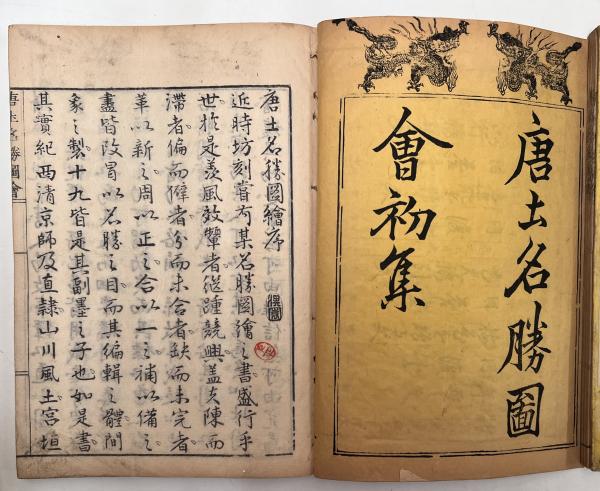 唐土名勝圖
會初集
唐土名勝圖繪序
近時坊刻嘗有某名勝圖繪之書盛行乎
世於是羨風效顰者從踵競興蓋失陳而
滯者偏而癖者分而未合者缺而未完者
革以新之周以正之合以一之補以備之
盡皆改冒以名勝之目而其編輯之體間
象之製十九皆是其副墨之子也如是書
其實紀西清京師及直隸山川風土宮垣
唐土名勝圖會